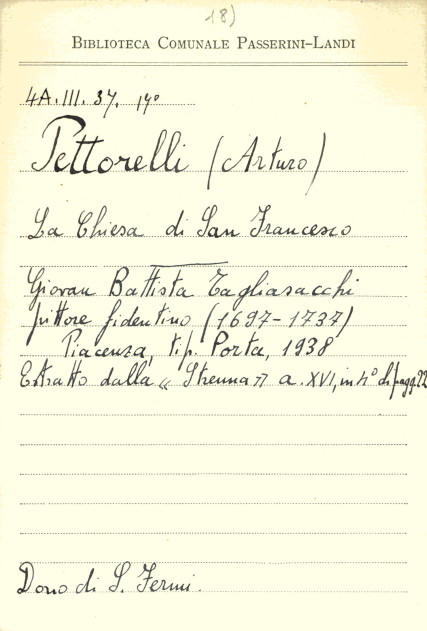 18)
BIBLIOTECA COMUNALE PASSERINI-LANDI
4A.III.37. 19°
Pettorelli (Arturo)
La Chiesa di San Francesco
Giovan Battista Tagliasacchi
pittore fidentino (1697-1737)
Piacenza, tip. Porta, 1938
Estratto dalla « Strenna » a. XVI, in 4° di pagg. 22
Dono di S. Fermi.